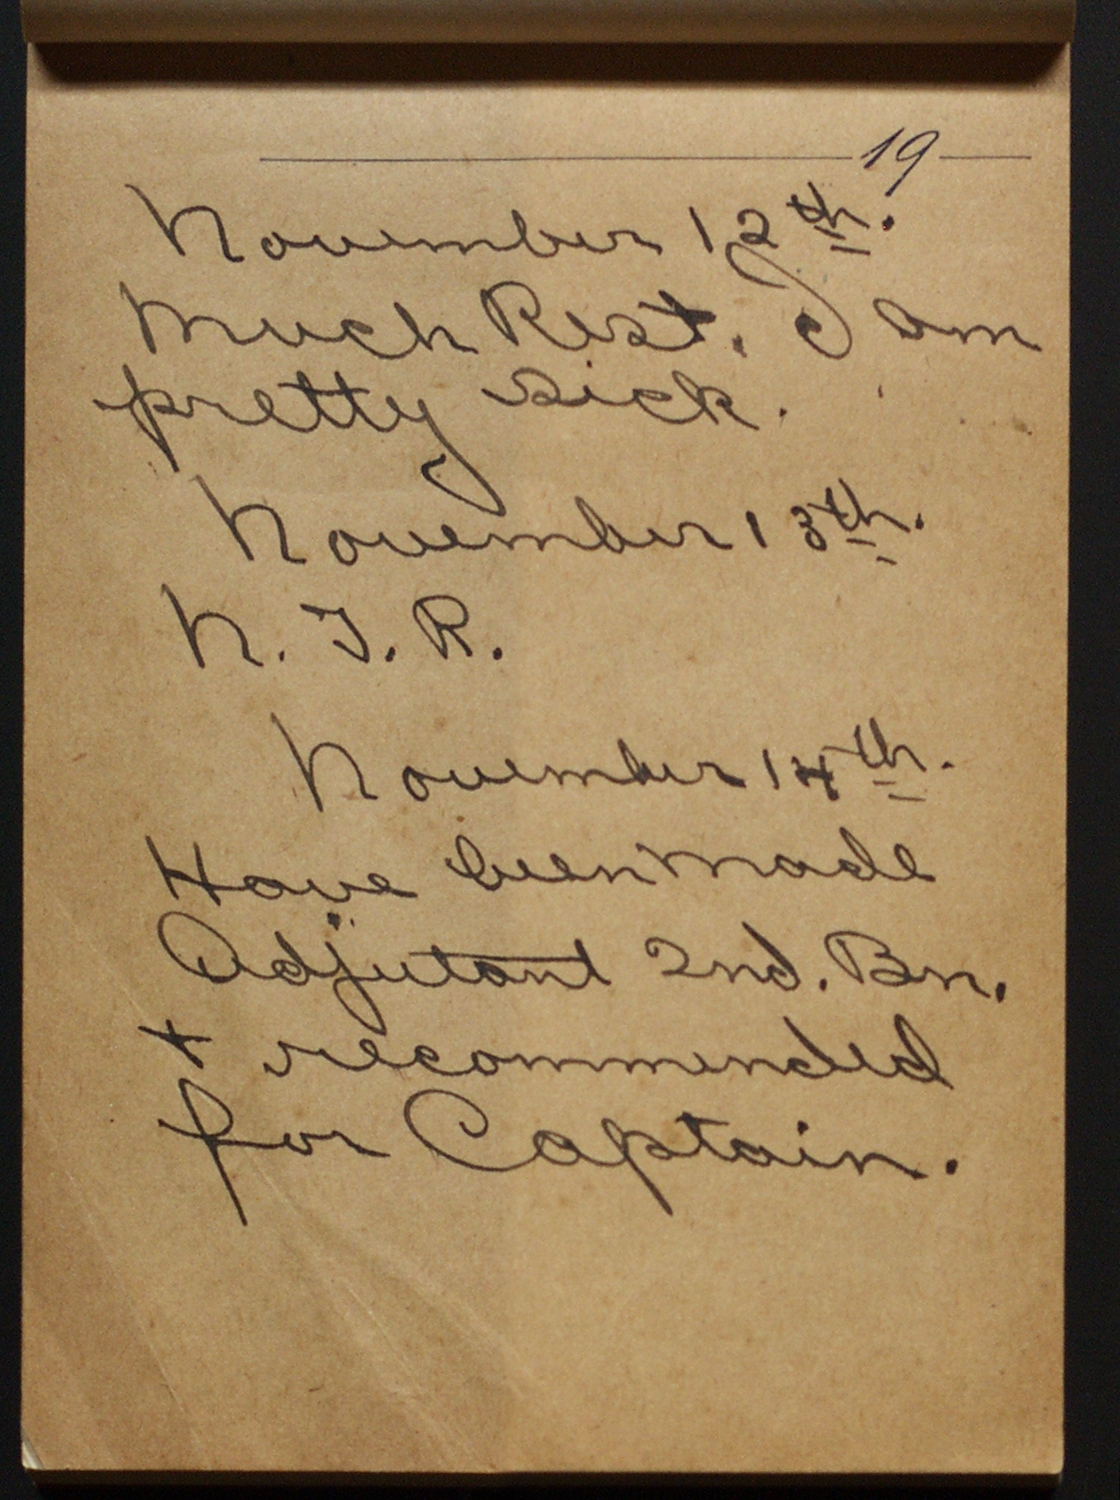 19
November 12th.
Much Rest. I am
pretty sick.
November 13th.
N. T. R.
November 14th.
Have been made
Adjutant 2nd. Bn.
+ recommended
for Captain.